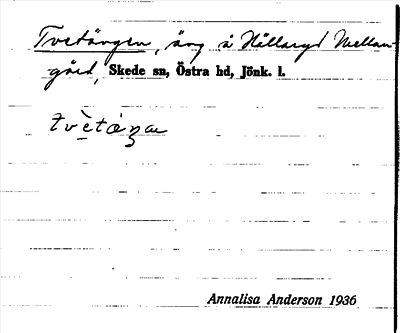 Tvetängen, äng å Hällaryd Mellan-
gård, Skede sn, Östra hd, Jönk. l.
Annalisa Anderson 1936